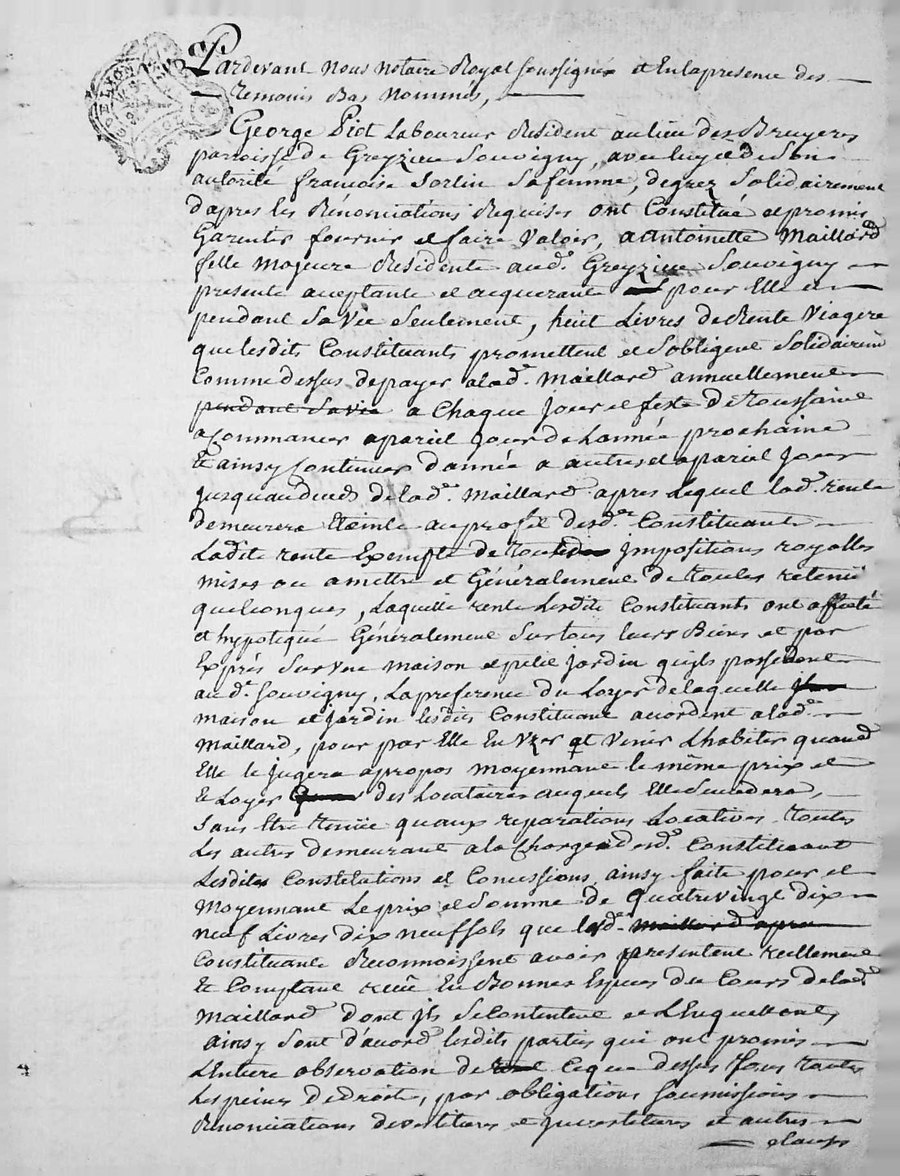 Pardevant nous notaire Royal soussigné et En la presence des
temoins Bas nommés,
George Piot Laboureur Resident au lieu des Bruyeres
paroisse de Greyzieu Souvigny, avec luy et de Son
autorité francoise Sorlin Safemme, degrez Solidairement
d'apres les Rénonciations Requises ont Constitué et promis
Garentir fournir et faire Valoir, a Antoinette Maillard
fille Majeure Residente aud.t Greyzieu Souvigny
presente aceptante et acquerante pour Elle et
pendant Savie Seulement, huit Livres de Rente Viagere
que lesdits Constituants promettent et Sobligent Solidairemt
Comme dessus de payer alad.e Maillard annuellement
pendant Savie a Chaque Jour et feste de Toussaint
a Commancer apareil Jour de Lannée prochaine
Et ainsy Continuer d'année a autres et apareil Jour
Jusquaudeceds de lad.e Maillard apres Lequel lad.e rente
demeurera Eteinte au profit desd.ts Constituants
Ladite rente Exempte de toutes impositions royalles
mises ou amettre et Généralement de toutes retenue
quelconques, Laquelle rente Lesdits Constituants ont affecté
et hypotiqué Généralement Sur tous leurs Biens et par
Exprés Sur Une maison et petit jardin quils possedent
aud.t Souvigny, La preference du Loyer de laquelle
maison et jardin lesdits Constituant acordent alad.e
Maillard, pour par Elle En Uzer et Venir Lhabiter quand
Elle le jugera apropos moyennant le même prix et
le Loyer des Locataires auquels Elle Sucedera,
Sans Etre tenüe quaux reparations Locatives toutes
Les autres demeurant ala Charge desd.ts Constituant
Lesdites Constitutions et Concessions ainsy faite pour et
Moyennant Le prix et Somme de quatrevingt dix
neuf Livres dix neuf sols que lesd.
Constituants Reconnoissent avoir presentement réellement
Et Comptant reçu En Bonnes Especes du Cours de lad.e
Maillard dont ils Secontentent et L'En quittent,
ainsy Sont d'acord lesdits parties qui ont promis
L'Entiere observation de Ceque dessus Sous toutes
Les peines de droit, par obligations Soumissions
Renonciations devestitures et Investitures et autres
clauses